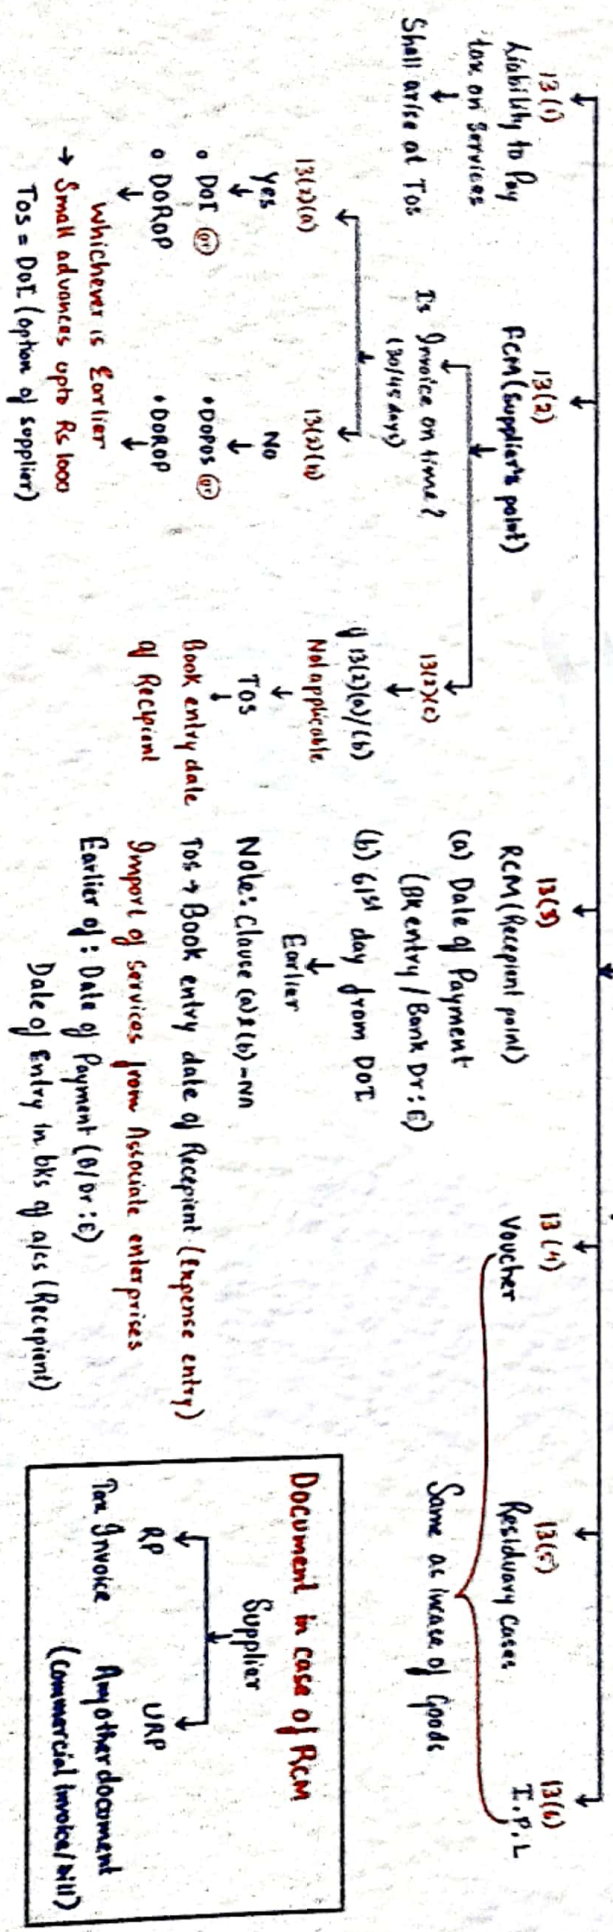 13(1)
Liability to Pay
tax on Services
↓
Shall arise at Tos
13(2)
FCM (Supplier's point)
Is Invoice on time?
(30/45 days)
13(2)(a)
Yes
↓
• DOI (or)
• DOROP
↓
Whichever is Earlier
→ Small advances upto Rs 1000
Tos = DOI (option of supplier)
13(2)(b)
No
↓
• DOPOS (or)
• DOROP
↓
13(2)(c)
↓
if 13(2)(a)/(b)
Not applicable
↓
Tos
↓
Book entry date
of Recipient
13(3)
RCM (Recepient point)
(a) Date of Payment
(BK entry / Bank Dr: E)
(b) 61st day from DOI
↓
Earlier
Note: Clause (a) & (b) - NA
Tos → Book entry date of Recepient (Expense entry)
Import of Services from Associate enterprises
Earlier of: Date of Payment (B/Dr: E)
Date of Entry in bks of a/cs (Recepient)
13(4)
Voucher
13(5)
Residuary Cases
13(6)
I.P.L
Same as incase of Goods
Document in case of RCM
Supplier
RP
Tax Invoice
URP
Any other document
(Commercial Invoice/bill)